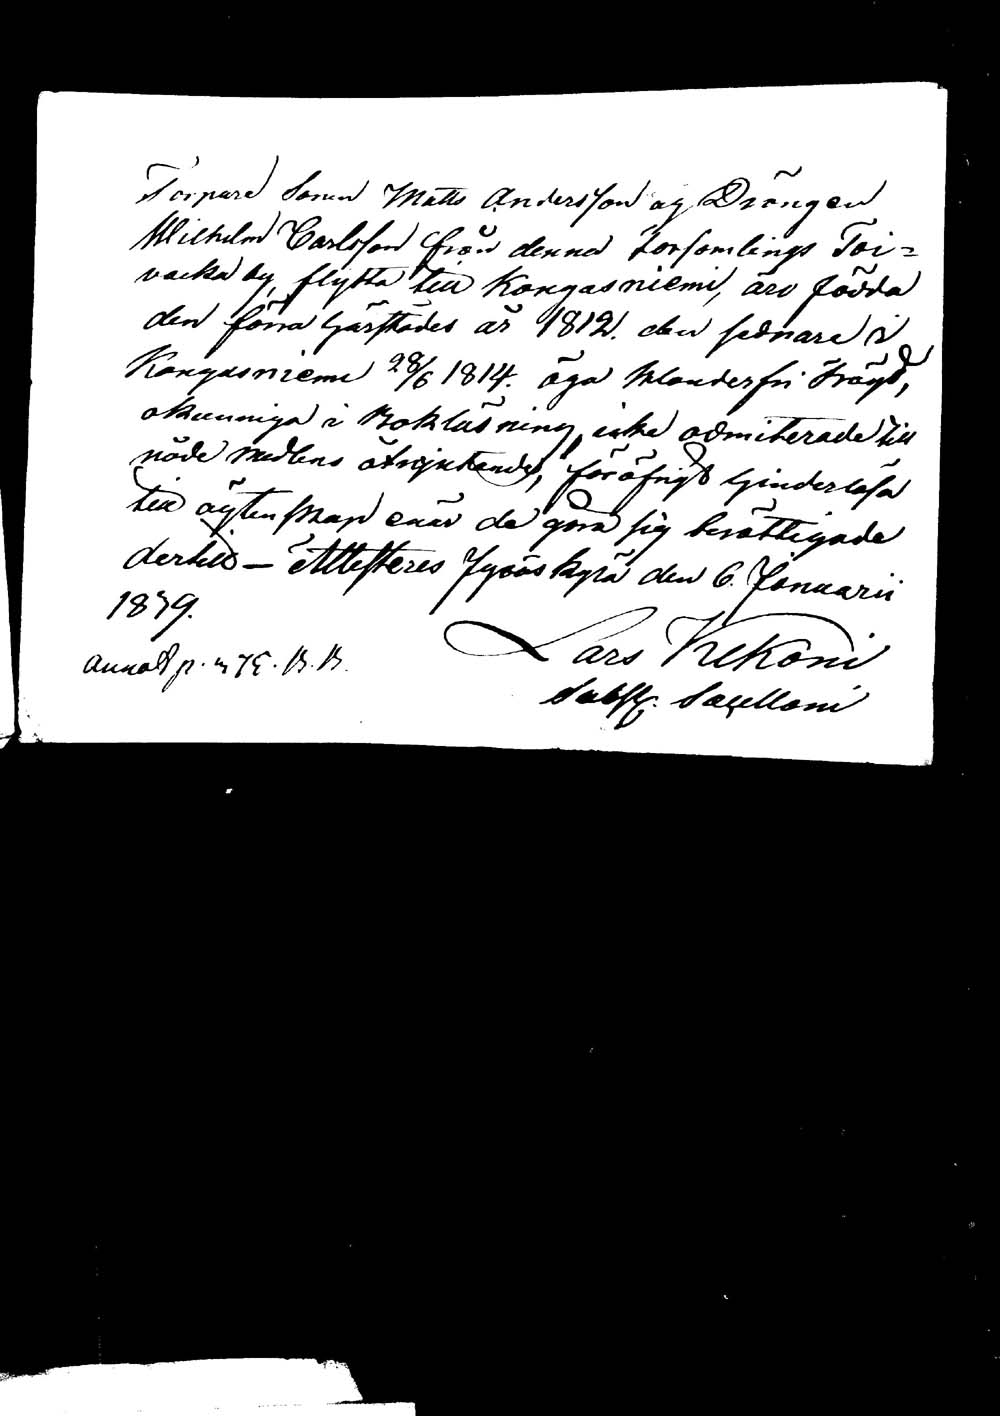 Torpare Sonen Matts Andersson og Drängen
Wilhelm Carlsson från denna Forsomlings Toi=
vacka by, flytta till Kangasniemi, äro födda
den förra härstädes år 1812. den sednare i
Kangasniemi 28/6 1814. äga klanderfri frägd,
okunniga i Bokläsning, icke admiterade till
nåde medlens åtnjutande, föröfrigt hinderlösa
till ägtenskap enär de göra sig berättigade
dertill — Attesteres Jyväskylä den 6. Januarii
1839.
Lars Kekoni
Subst. Sacellani